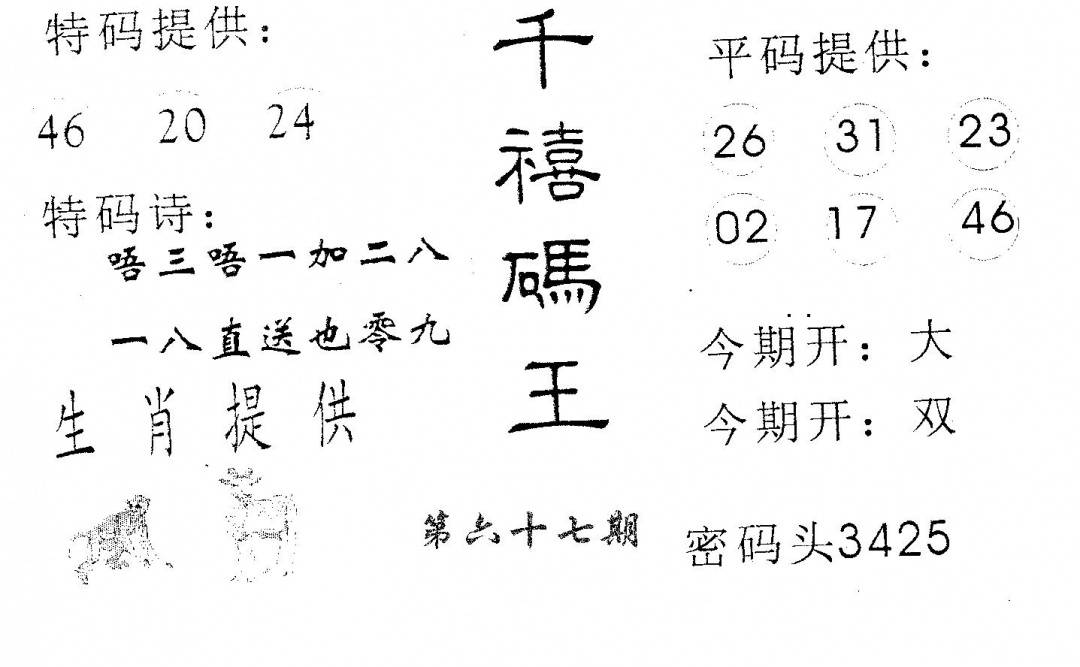 特码提供：
46 20 24
特码诗：
唔三唔一加二八
一八直送也零九
生肖提供
千禧碼王
第六十七期
平码提供：
26 31 23
02 17 46
今期开：大
今期开：双
密码头3425